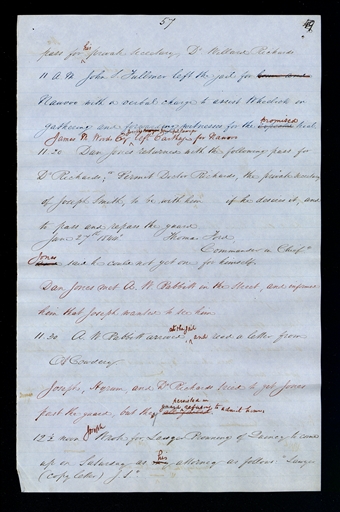 57
49
pass for his private Secretary, Dr Willard Richards
11 A M John S Fullmer left the jail for
Nauvoo with a verbal charge to assist Wheelock in
gathering and forwarding witnesses for the promised trial
James W. Woods Esq left Carthage for Nauvoo
11.20 Dan Jones returned with the following pass for
Dr Richards; "Permit Doctor Richards, the private Secretary
of Joseph Smith, to be with him if he desires it, and
to pass and repass the guard
June 27th 1844 Thomas Ford
Commander in Chief"
Jones said he could not get one for himself.
Dan Jones met A. W. Babbitt in the Street, and informed
him that Joseph wanted to see him
11.30 A. W. Babbitt arrived at the jail and read a letter from
O Cowdery
Joseph, Hyrum, and Dr Richards tried to get Jones
past the guard, but they persisted in refusing to admit him.
12½ noon Joseph Wrote for Lawyer Browning of Quincy to come
up on Saturday as his attorney as follows: "Lawyer
(copy letter) J 1"